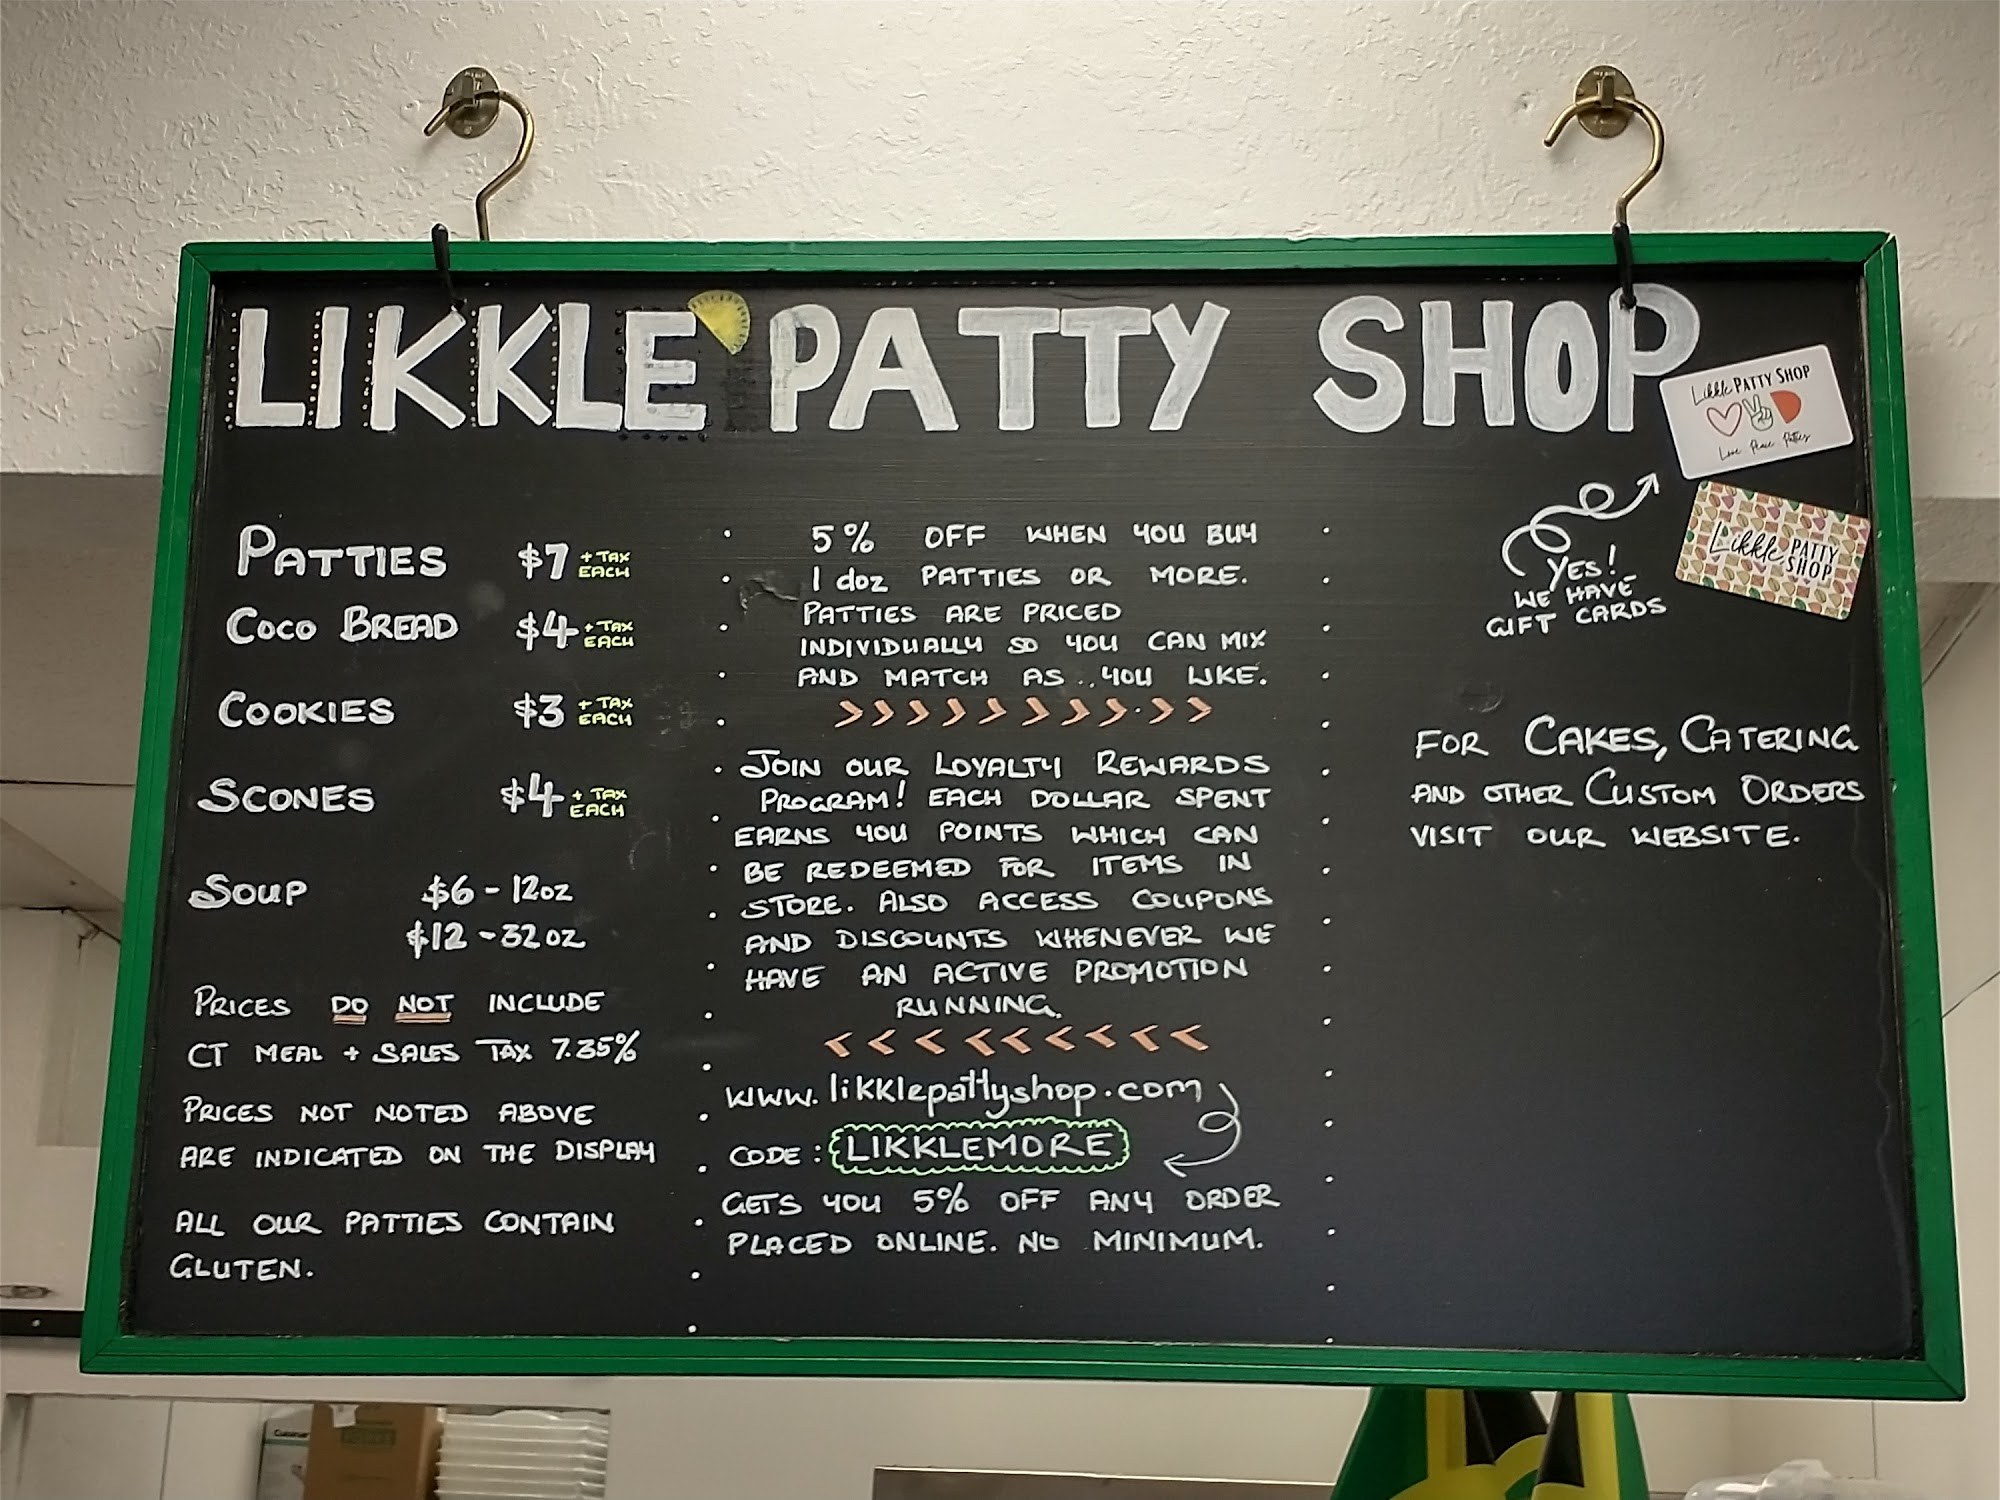 LIKKLE PATTY SHOP
PATTIES $7 + TAX EACH
COCO BREAD $4 + TAX EACH
COOKIES $3 + TAX EACH
SCONES $4 + TAX EACH
SOUP $6 - 12oz
$12 - 32oz
PRICES DO NOT INCLUDE
CT MEAL + SALES TAX 7.35%
PRICES NOT NOTED ABOVE
ARE INDICATED ON THE DISPLAY
ALL OUR PATTIES CONTAIN
GLUTEN.
5% OFF WHEN YOU BUY
1 doz PATTIES OR MORE.
PATTIES ARE PRICED
INDIVIDUALLY SO YOU CAN MIX
AND MATCH AS .. YOU LIKE.
JOIN OUR LOYALTY REWARDS
PROGRAM! EACH DOLLAR SPENT
EARNS YOU POINTS WHICH CAN
BE REDEEMED FOR ITEMS IN
STORE. ALSO ACCESS COUPONS
AND DISCOUNTS WHENEVER WE
HAVE AN ACTIVE PROMOTION
RUNNING.
www.likklepattyshop.com
CODE: LIKKLEMORE
GETS YOU 5% OFF ANY ORDER
PLACED ONLINE. NO MINIMUM.
Likkle PATTY SHOP
Love Peace Patties
Likkle PATTY
SHOP
YES!
WE HAVE
GIFT CARDS
FOR CAKES, CATERING
AND OTHER CUSTOM ORDERS
VISIT OUR WEBSITE.